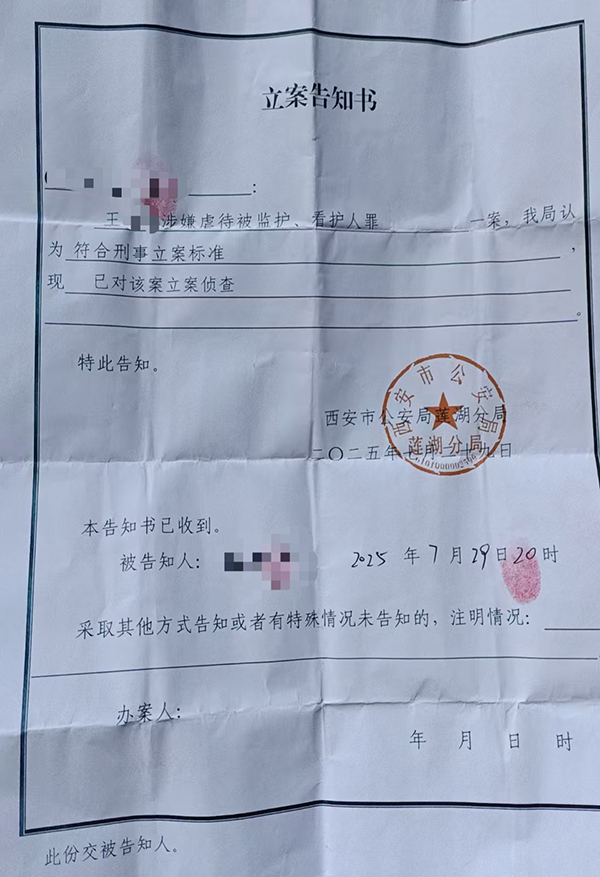 立案告知书
:
王 涉嫌虐待被监护、看护人罪 一案，我局认
为 符合刑事立案标准 ，
现 已对该案立案侦查
。
特此告知。
西安市公安局莲湖分局
西安市公安局
莲湖分局
二〇二五年七月二十九日
本告知书已收到。
被告知人： 2025 年 7 月 29 日 20 时
采取其他方式告知或者有特殊情况未告知的，注明情况：
办案人：
年 月 日 时
此份交被告知人。